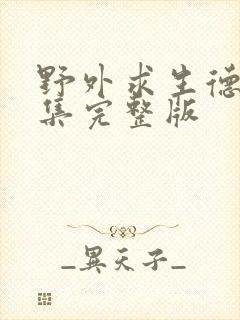 野外求生德
集完整版
_異天子_